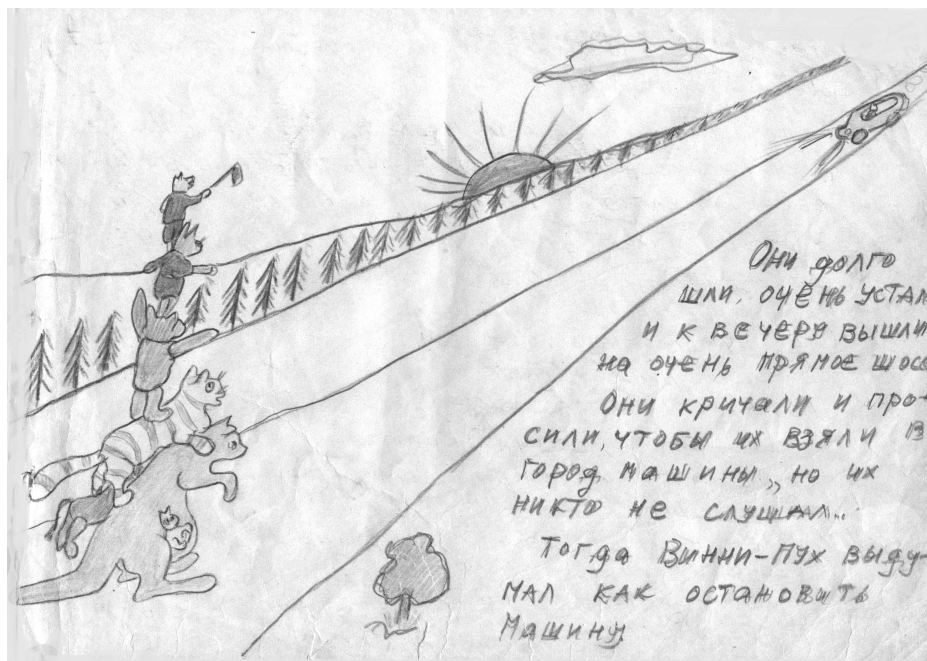 Они долго
шли, очень устал
и к вечеру вышли
на очень прямое шосс
Они кричали и про-
сили, чтобы их взяли в
город машины, но их
никто не слушал..
Тогда Винни-Пух выду-
мал как остановить
машину